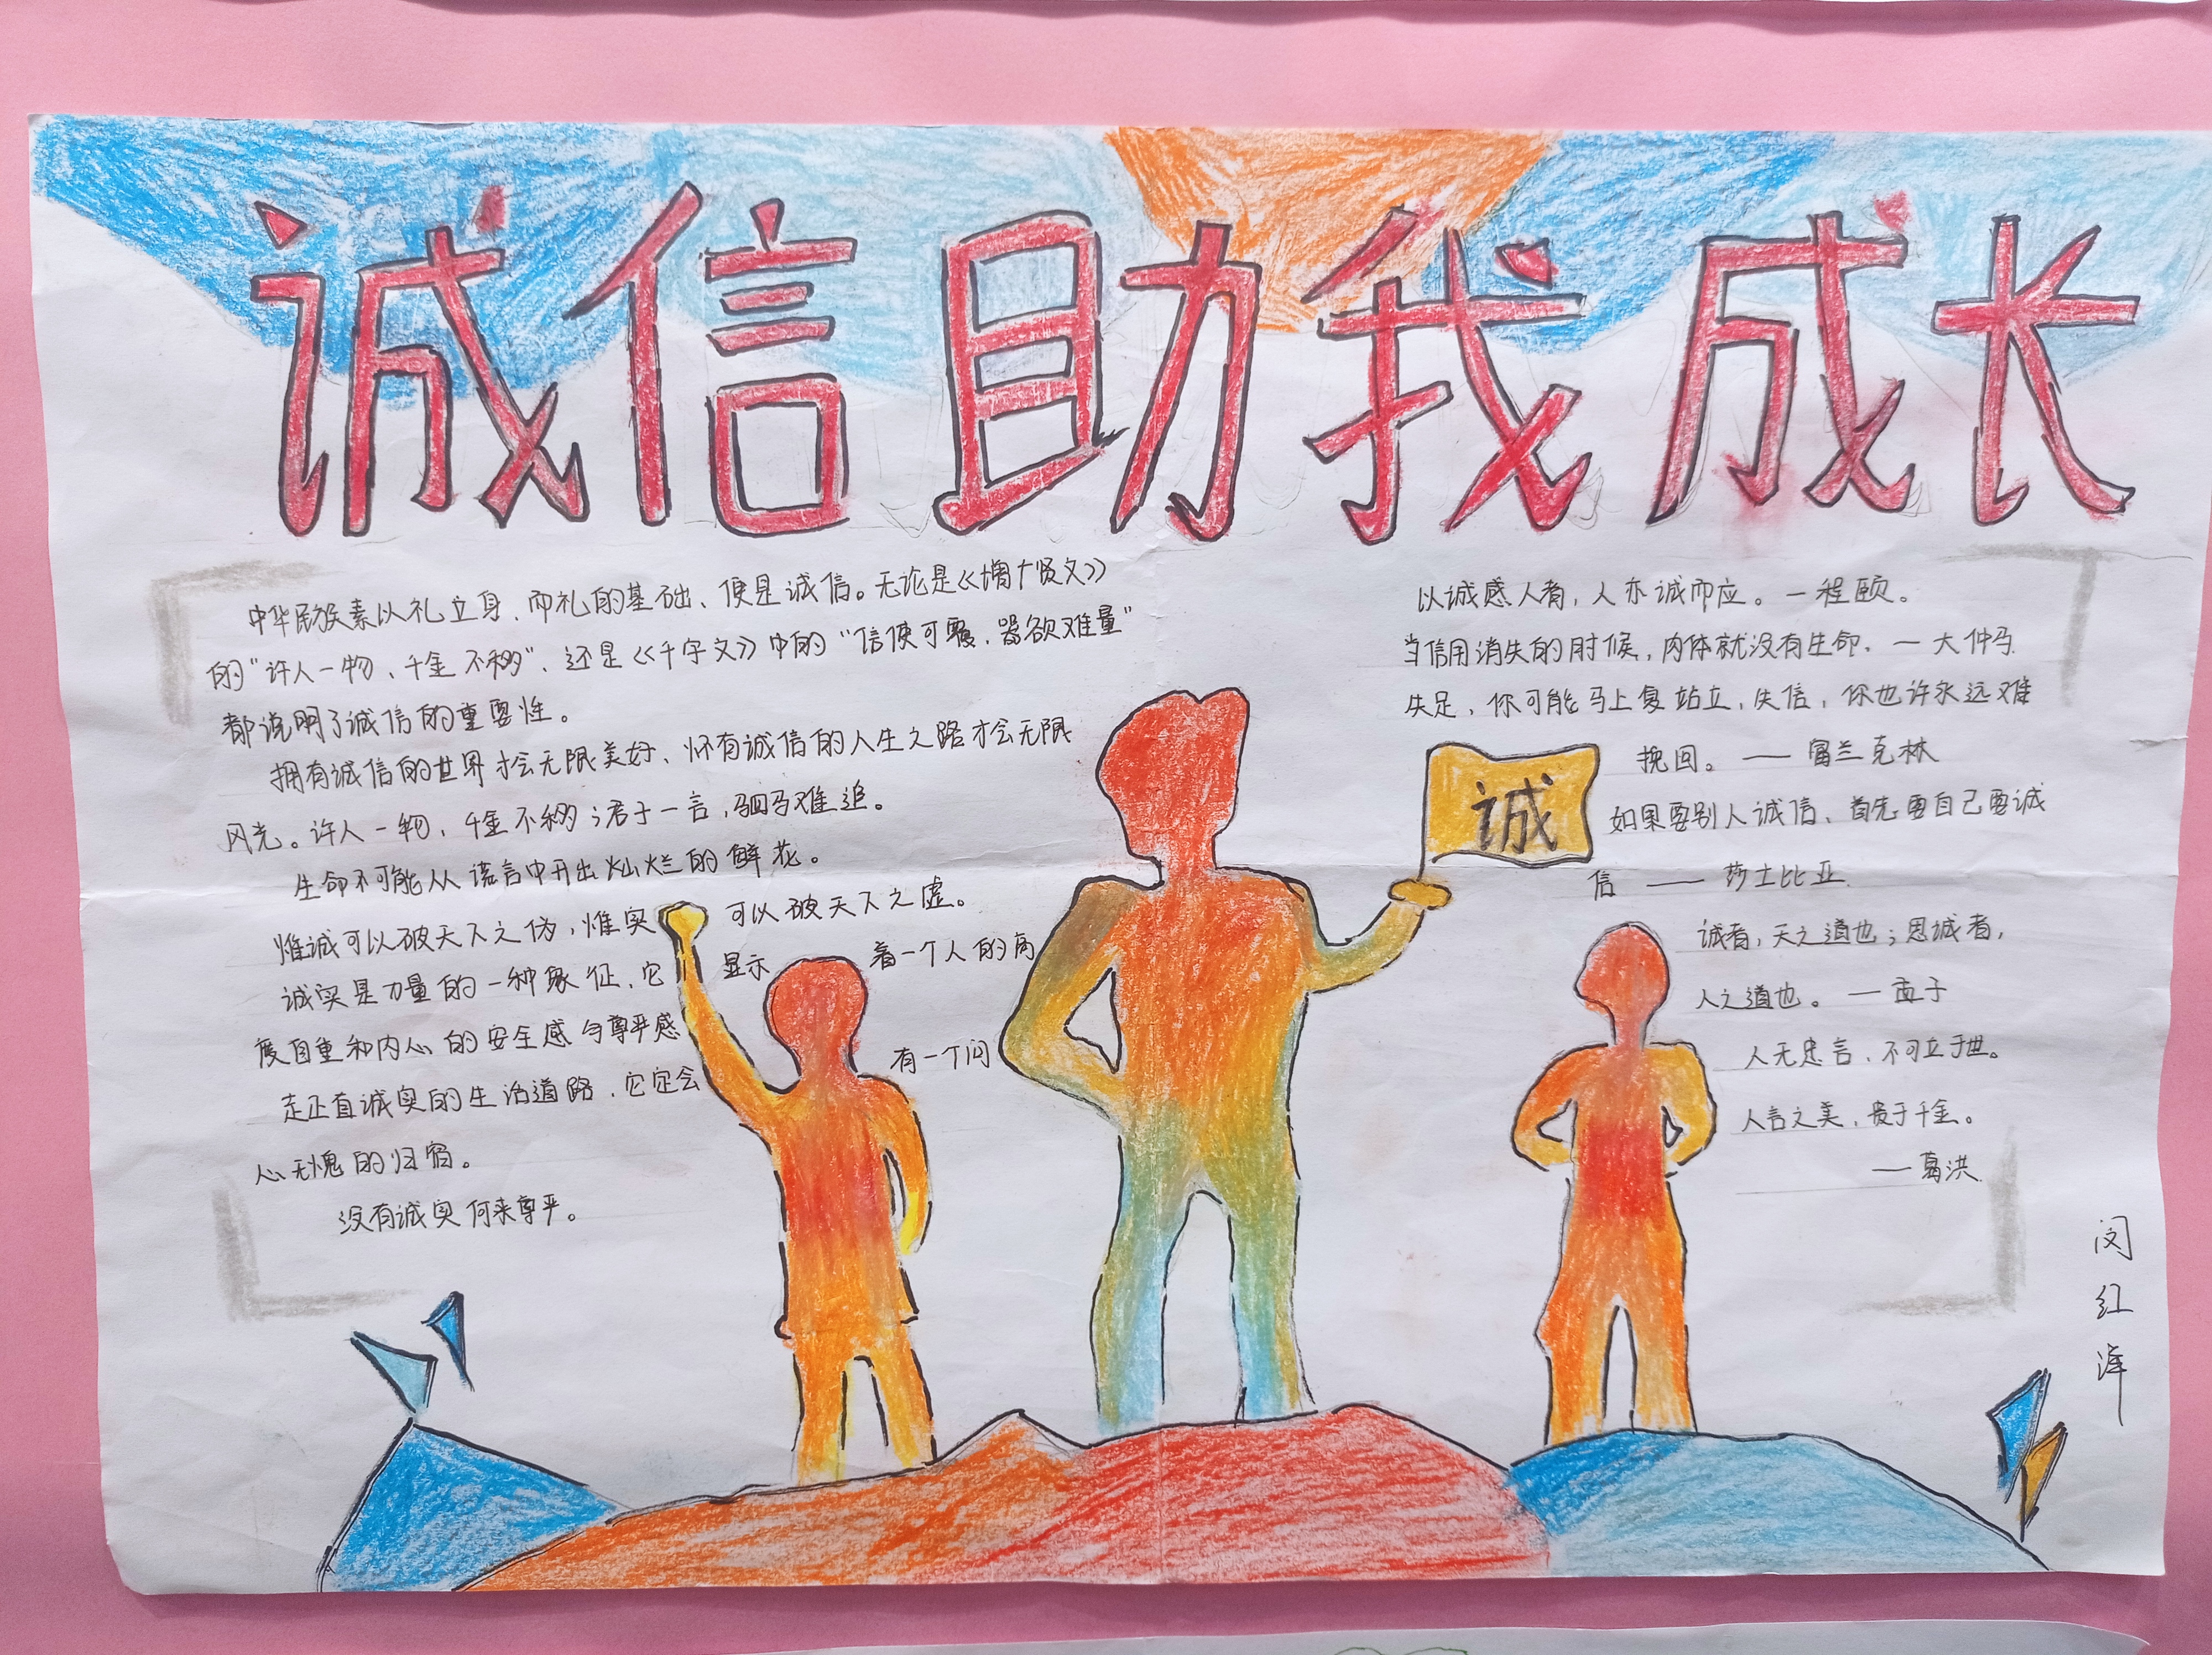 诚信助我成长
中华民族素以礼立身、而礼的基础、便是诚信。无论是《增广贤文》
的"许人一物、千金不移"、还是《千字文》中的"信使可覆、器欲难量"
都说明了诚信的重要性。
拥有诚信的世界才会无限美好、怀有诚信的人生之路才会无限
风光。许人一物、千金不移；君子一言，驷马难追。
生命不可能从谎言中开出灿烂的鲜花。
惟诚可以破天下之伪，惟实可以破天下之虚。
诚实是力量的一种象征、它显示着一个人的高
度自重和内心的安全感与尊严感
走正直诚实的生活道路、它定会有一个问
心无愧的归宿。
没有诚实何来尊严。
以诚感人者，人亦诚而应。—程颐。
当信用消失的时候，肉体就没有生命、—大仲马
失足，你可能马上复站立，失信，你也许永远难
挽回。——富兰克林
如果要别人诚信、首先要自己要诚
信——莎士比亚
诚
诚者，天之道也；思诚者，
人之道也。—孟子
人无忠言、不可立于世。
人言之美，贵于千金。
—葛洪
闵红泽